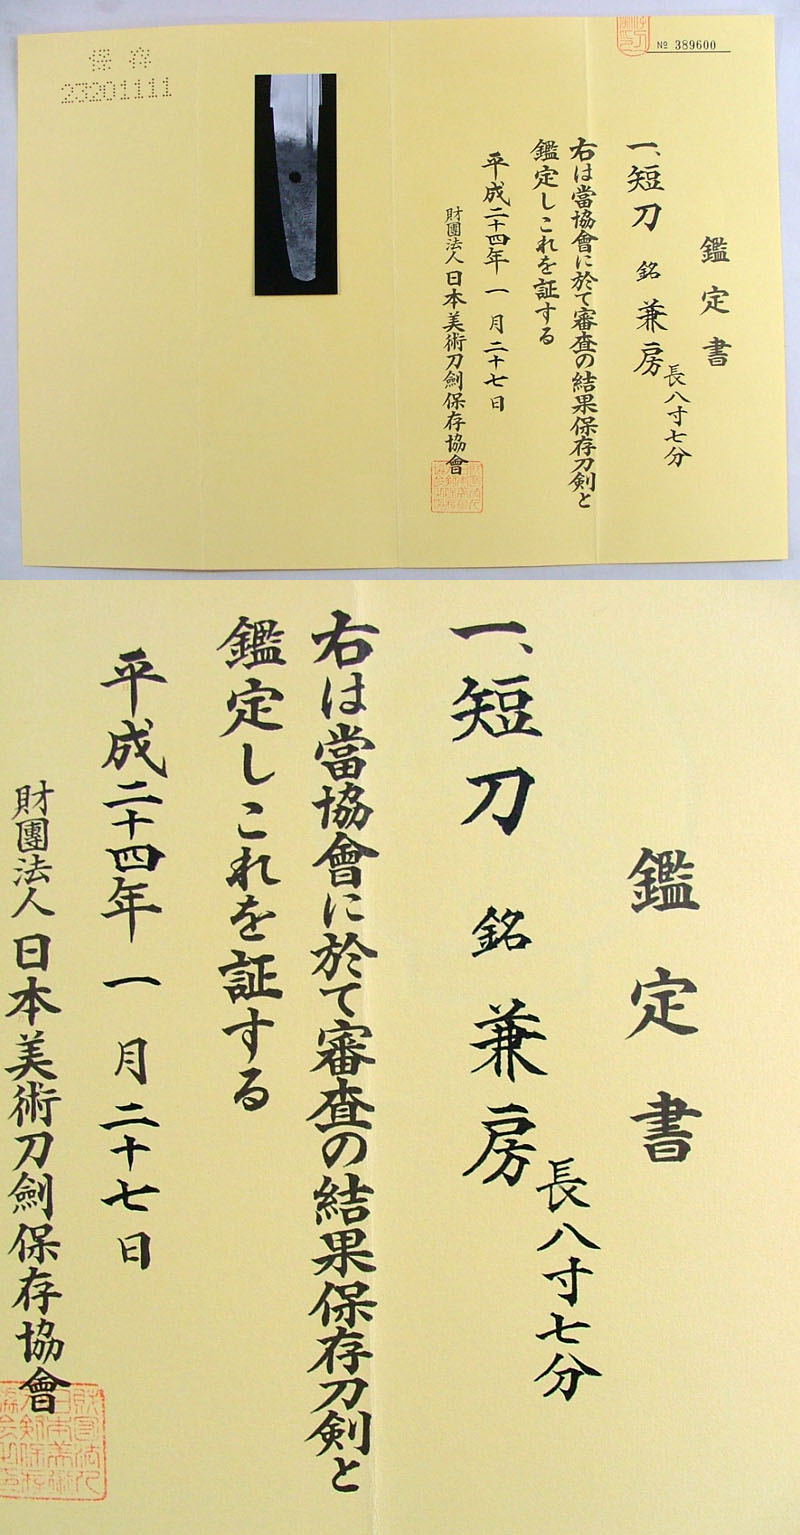 № 389600
鑑定書
一、短刀 銘 兼房
長八寸七分
右は當協會に於て審査の結果保存刀剣と
鑑定しこれを証する
平成二十四年一月二十七日
財團法人 日本美術刀劍保存協會
保存
23201111
鑑定書
一、短刀 銘 兼房
長八寸七分
右は當協會に於て審査の結果保存刀剣と
鑑定しこれを証する
平成二十四年一月二十七日
財團法人 日本美術刀劍保存協會